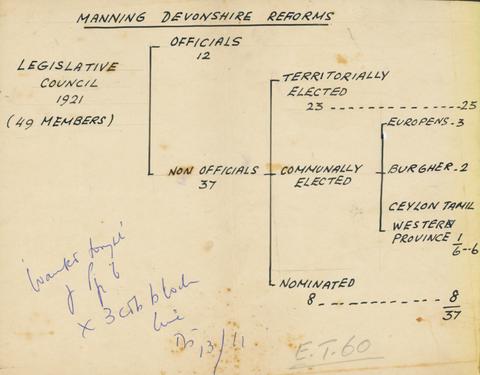 MANNING DEVONSHIRE REFORMS
OFFICIALS
12
LEGISLATIVE
COUNCIL
1921
(49 MEMBERS)
NON OFFICIALS
37
TERRITORIALLY
ELECTED
23 ------------------ 25
COMMUNALLY
ELECTED
EUROPENS - 3
BURGHER - 2
CEYLON TAMIL
WESTERN
PROVINCE 1
6 -- 6
NOMINATED
8 ------------------ 8
37
x 3 block
13/11
E.T. 60